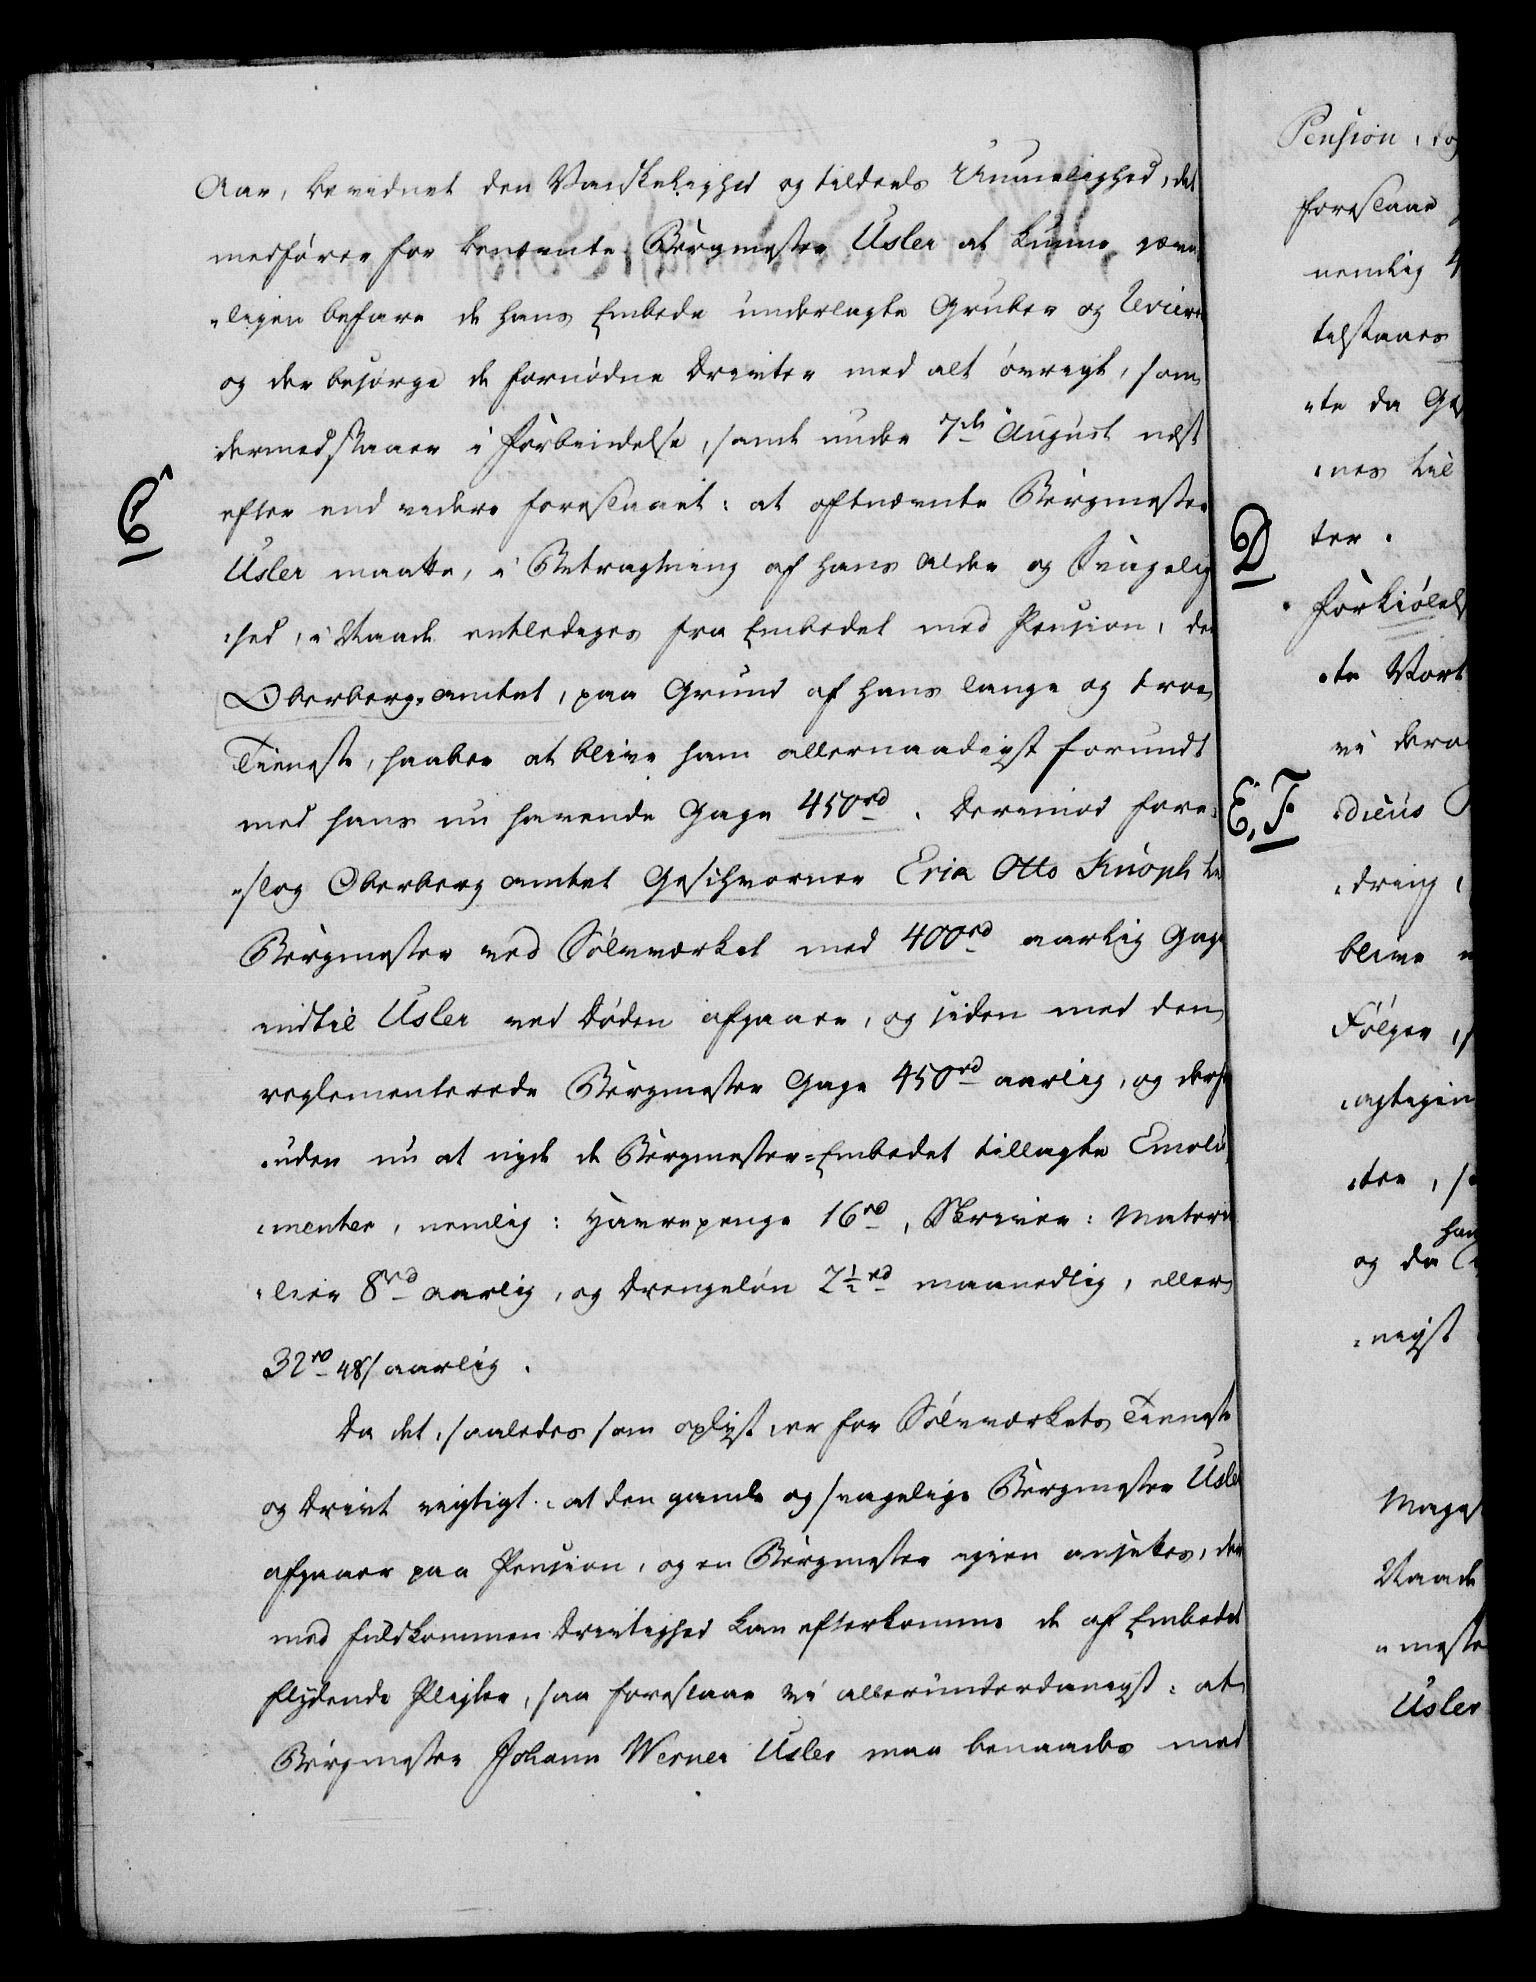 Aar, bevidnet den Vanskelighed og tildeels Umuelighed, det
medfører for benævnte Bergmester Usler at kunne jævn
-ligen befare de hans Embede underlagte Gruber og Revierer
og der besørge de fornødne Drivter med alt øvrigt, som
dermed staaer i Forbindelse, samt under 7de August næst
efter end videre foreslaaet: at oftnævnte Bergmester
C
Usler maatte, i Betragtning af hans Alder og Svagelig
-hed, i Naade entlediges fra Embedet med Pension, der
Oberberg-amtet, paa Grund af hans lange og troe
Tieneste, haaber at blive ham allernaadigst forundt
med hans nu havende Gage 450 rd. Derimod fore-
-slog Oberberg amtet Geschworner Erik Otto Knoph til
Bergmester ved Sølvværket med 400 rd aarlig Gage
indtil Usler ved Døden afgaaer, og siden med den
reglementerede Bergmester Gage 450 rd aarlig, og dersf
-uden nu at nyde de Bergmester-Embedet tillagte Emolu-
-menter, nemlig: Havrepenge 16 rd, Skriver-Materia
-lier 8 rd aarlig, og Drengeløn 2½ rd maanedlig, eller
32 rd 48 s aarlig.
Da det, saaledes som oplyst, er for Sølvværkets Tieneste
og Drivt vigtigt: at den gamle og svagelige Bergmester Usler
afgaaer paa Pension, og en Bergmester igien ansættes, der
med fuldkommen Drivtighed kan efterkomme de af Embedet
flydende Pligter, saa foreslaae vi allerunderdanigst: at
Bergmester Johann Werner Usler maa benaades med
Pension, dog
foreslaae
nemlig 4
tilstaaes
-te da Ge
-nes til
D
ter.
Forkiølels
-te Vort
vi dero
E, F
-dicus
-dring,
blive
Følger, s
-agtigen
-ter, s
han
og da
-nigst
Mages
Naade
-meste
Usler